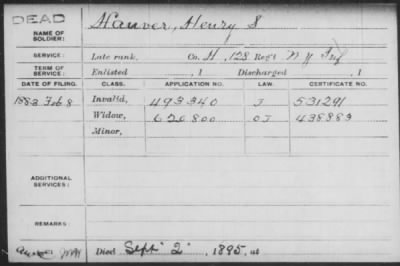 DEAD
NAME OF SOLDIER: Hauver, Henry S
SERVICE: Late rank, Co. H, 128 Reg't N Y Inf
TERM OF SERVICE: Enlisted , 1 Discharged , 1
DATE OF FILING. CLASS. APPLICATION NO. LAW. CERTIFICATE NO.
1883 Feb 8 Invalid, 493340 J 531291
Widow, 620800 OJ 438883
Minor,
ADDITIONAL SERVICES:
REMARKS:
Died Sept 2, 1895, at